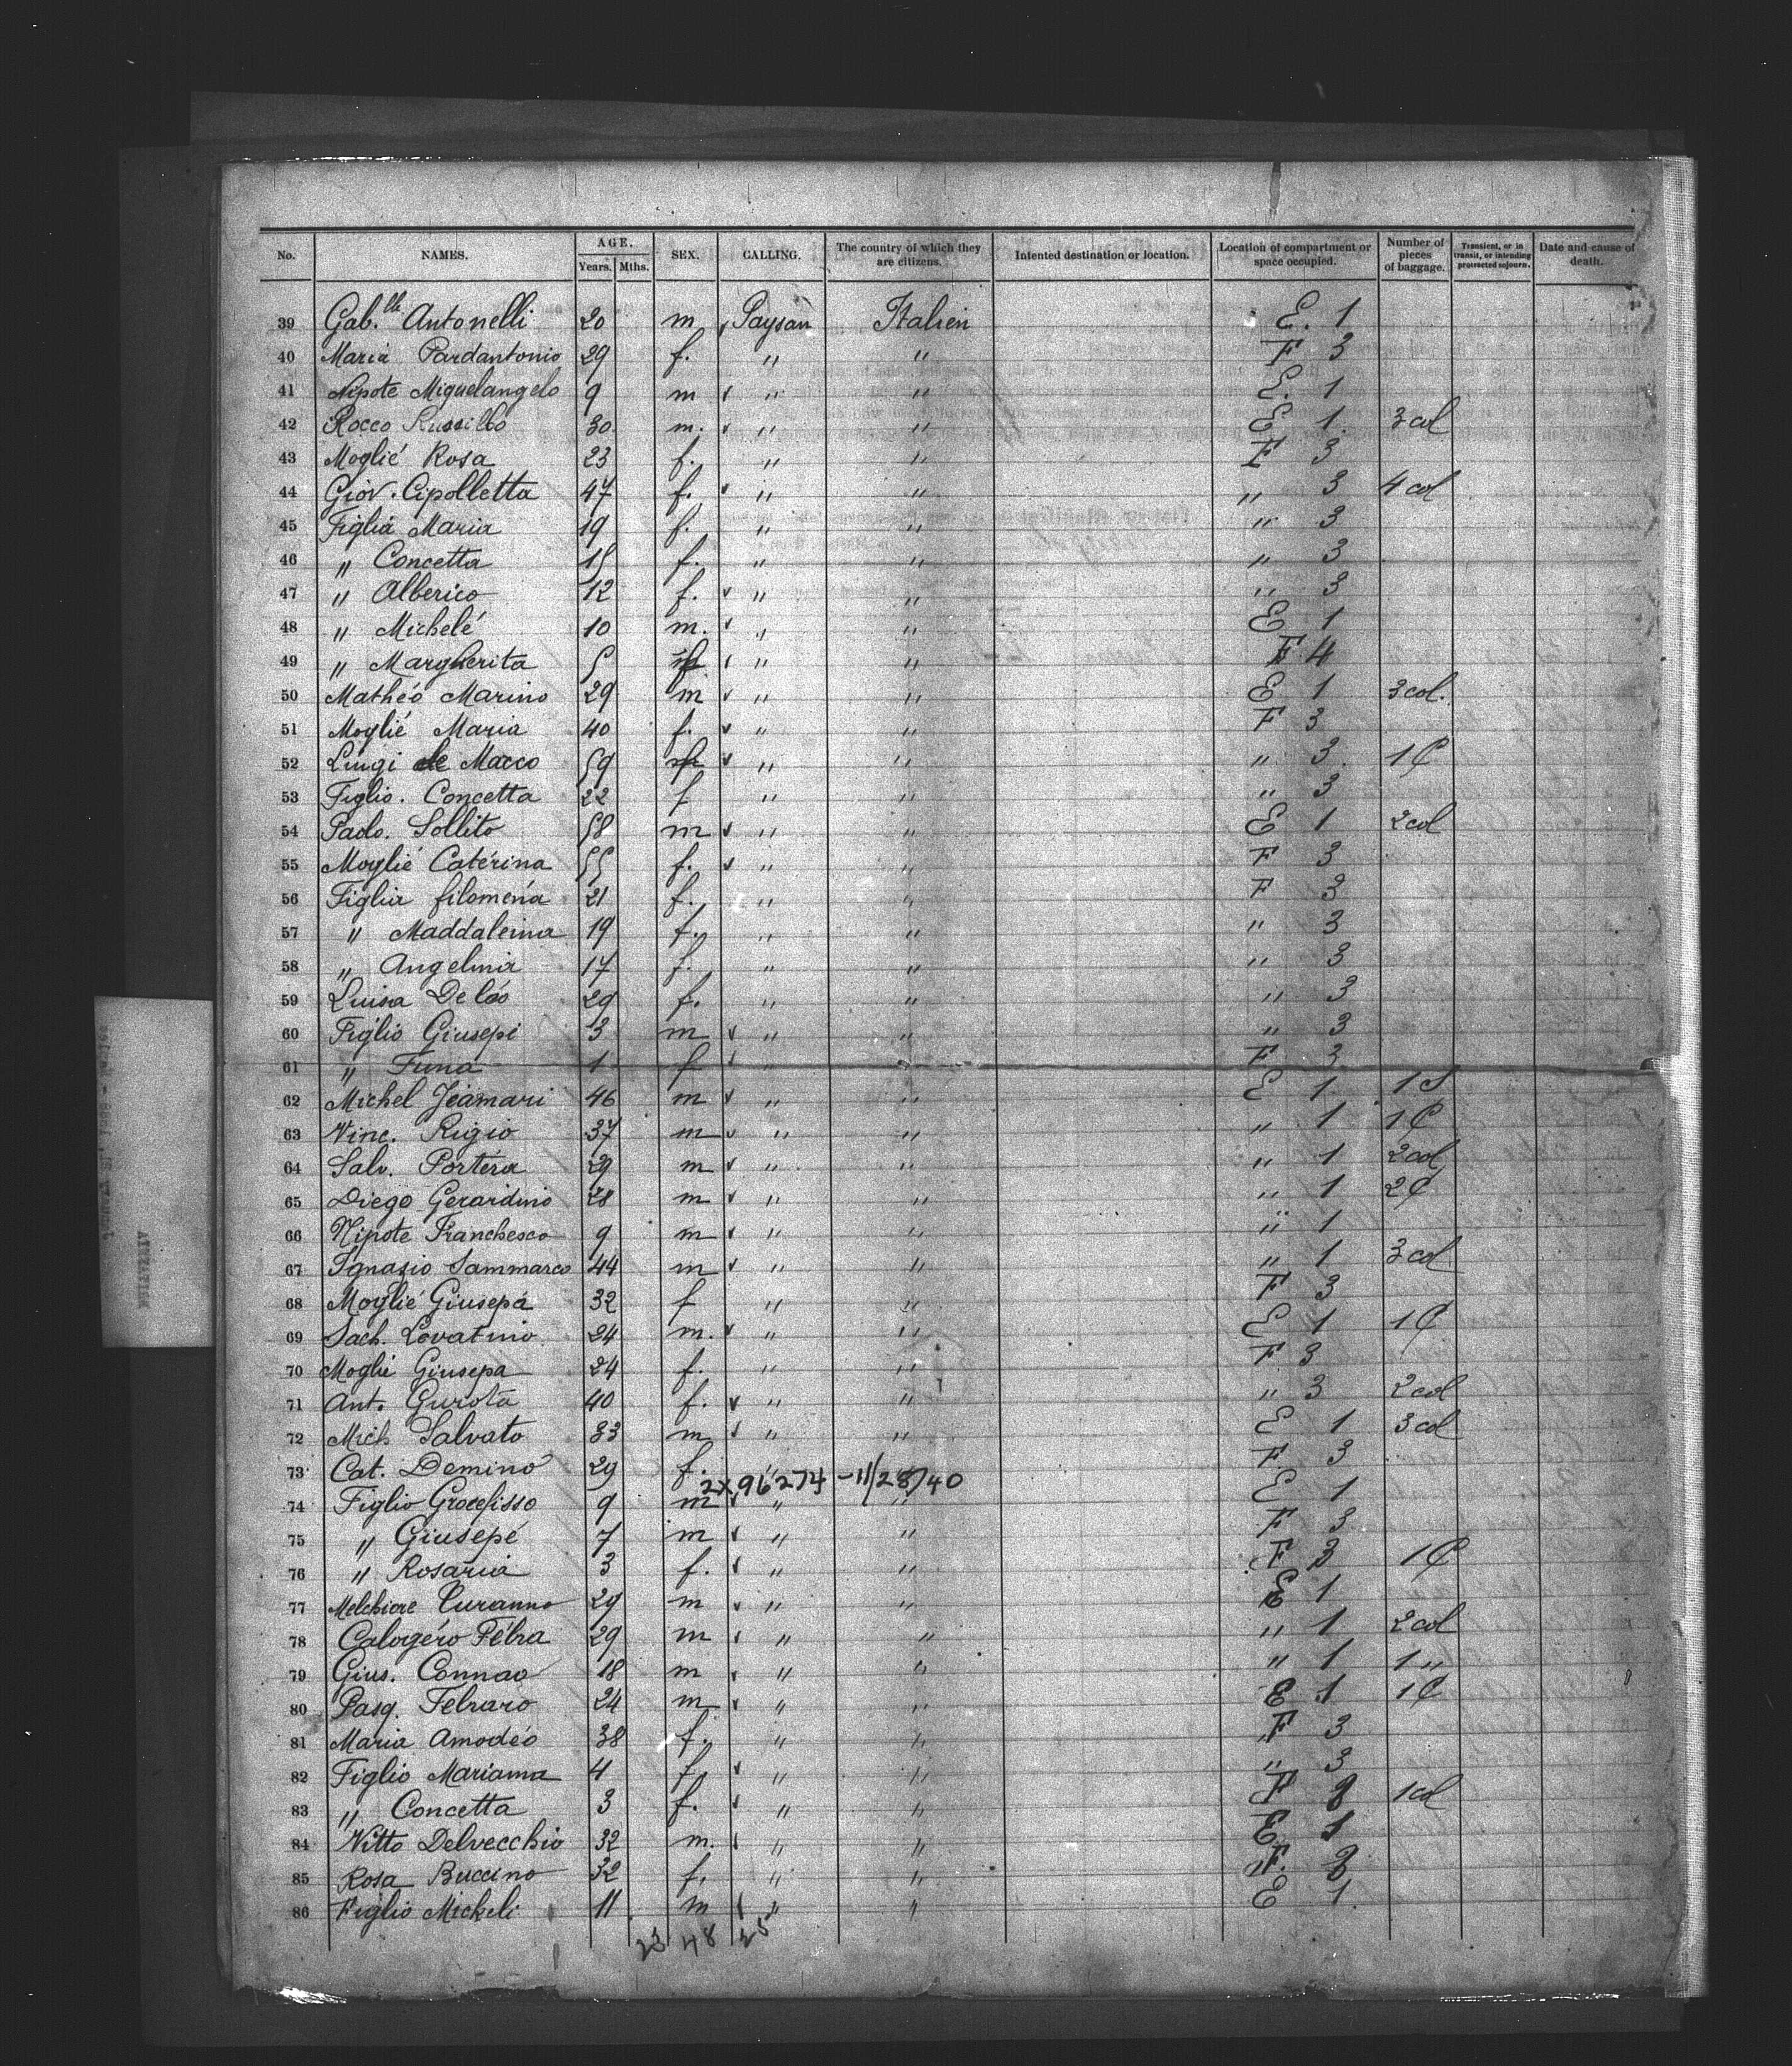 No. NAMES. AGE. Years. Mths. SEX. CALLING. The country of which they are citizens. Intented destination or location. Location of compartment or space occupied. Number of pieces of baggage. Transient, or in transit, or intending protracted sojourn. Date and cause of death.
39 Gab.lle Antonelli 20 m Paysan Italien E. 1
40 Maria Pardantonio 29 f. " " F 3
41 Nipote Miguelangelo 9 m " " E. 1
42 Rocco Russillo 30 m. " " E 1. 3 col
43 Moglié Rosa 23 f. " " F 3
44 Giov. Cipolletta 47 f. " " " 3 4 col
45 Figlia Maria 19 f. " " " 3
46 " Concetta 15 f. " " " 3
47 " Alberico 12 f. " " " 3
48 " Michelé 10 m. " " E 1
49 " Margherita 5 f " " F 4
50 Mathéo Marino 29 m " " E 1 3 col.
51 Moglié Maria 40 f. " " F 3
52 Luigi de Macco 59 " " " 3 1 C
53 Figlio. Concetta 22 f " " " 3
54 Paolo. Sollito 58 m " " E 1 2 col
55 Moglié Catérina 55 f. " " F 3
56 Figlia filomena 21 f. " " F 3
57 " Maddaleina 19 f. " " " 3
58 " Angelina 17 f. " " " 3
59 Luisa De 29 f. " " " 3
60 Figlio Giusepé 3 m " " " 3
61 " Funa 1 f " " F 3
62 Michel Jeamari 46 m " " E 1 1 S
63 Vinc. Rigio 37 m " " " 1 1 C
64 Salv. Portéra 29 m " " " 1 2 col
65 Diego Gerardino 28 m " " " 1 2 C
66 Nipote Franchesco 9 m " " " 1
67 Ignazio Sammarco 44 m " " " 1 3 col
68 Moglié Giusepa 32 f " " F 3
69 Sach. Lovatino 24 m. " " E 1 1 C
70 Moglié Giusepa 24 f. " " F 3
71 Ant. Gurota 40 f. " " " 3 2 col
72 Mich Salvato 33 m " " E 1 3 col
73 Cat. Demino 29 f. F. 3
2X96274 - 11/28/40
74 Figlio 9 m " " E 1
75 " Giusepé 7 m " " F 3
76 " Rosaria 3 f. " " F 3 1 C
77 Melchiore Curanno 29 m " " E 1
78 Calogéro Felra 29 m " " " 1 2 col
79 Gius. Connao 18 m " " " 1 1 "
80 Pasq. Felraro 24 m " " E 1 1 C
81 Maria Amodéo 38 f. " " F 3
82 Figlio Mariana 4 f " " " 3
83 " Concetta 3 f. " " F 3 1 col
84 Vitto Delvecchio 32 m. " " E 1
85 Rosa Buccino 32 f. " " F. 3
86 Figlio Micheli 11 m " " E 1.
23 48 25